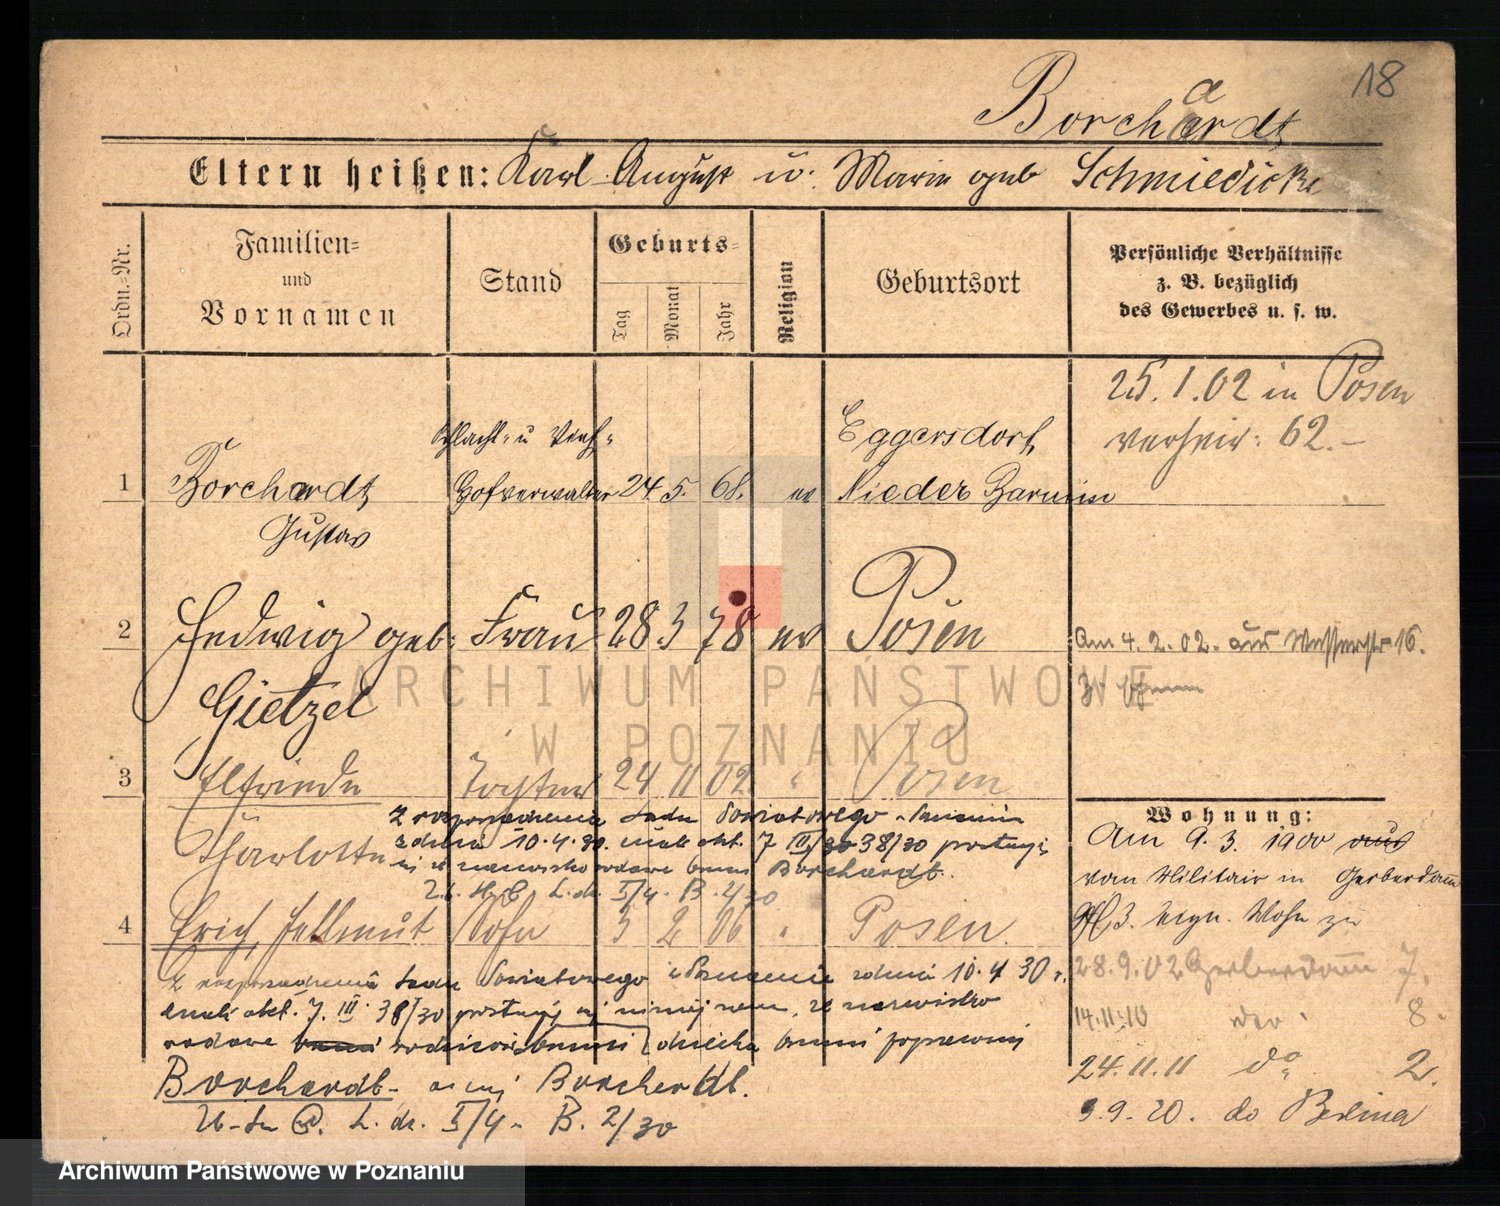 18
Borchardt
a
Eltern heißen: Karl August u. Marie geb Schmiedicke
Ordn.-Nr.
Familien-
und
Vornamen
Stand
Geburts-
Tag
Monat
Jahr
Religion
Geburtsort
Persönliche Verhältnisse
z. B. bezüglich
des Gewerbes u. s. w.
25.1.02 in Posen
verheir: 62.-
Schlacht- u Vieh-
Eggersdorf,
1 Borchardt Hofverwalter 24 5. 68. ev Nieder Barnim
Gustav
2 Hedwig geb: Frau 28 3 78 ev Posen
Gietzel
Am 4.2.02. aus Wasserstr 16.
3 Elfriede Tochter 24 11 02 " Posen
Charlotte
z rozporządzenia Sadu Powiatowego
z dnia 10.4.30. 7 III 38/30
nazwisko rodowe Borchardt.
L. dz. I/4. B. 2/30
4 Erich, Hellmut Sohn 3 2 06 " Posen.
z rozporządzenia Sadu Powiatowego w Poznaniu z dnia 10.4 30 r.
7. III. 38/30 nazwisko
rodowe rodziców brzmi dziecka brzmi
Borchardt- a nie Borcherdt.
L. dz. I/4- B. 2/30
Wohnung:
Am 9.3. 1900 aus
vom Militair in Gerberdamm
3. Wohn zu
28.9.02 Gerberdamm 7.
14.11.10 8.
24.11.11 do 2.
9.9.20. do Berlina
ARCHIWUM PAŃSTWOWE
W POZNANIU
Archiwum Państwowe w Poznaniu